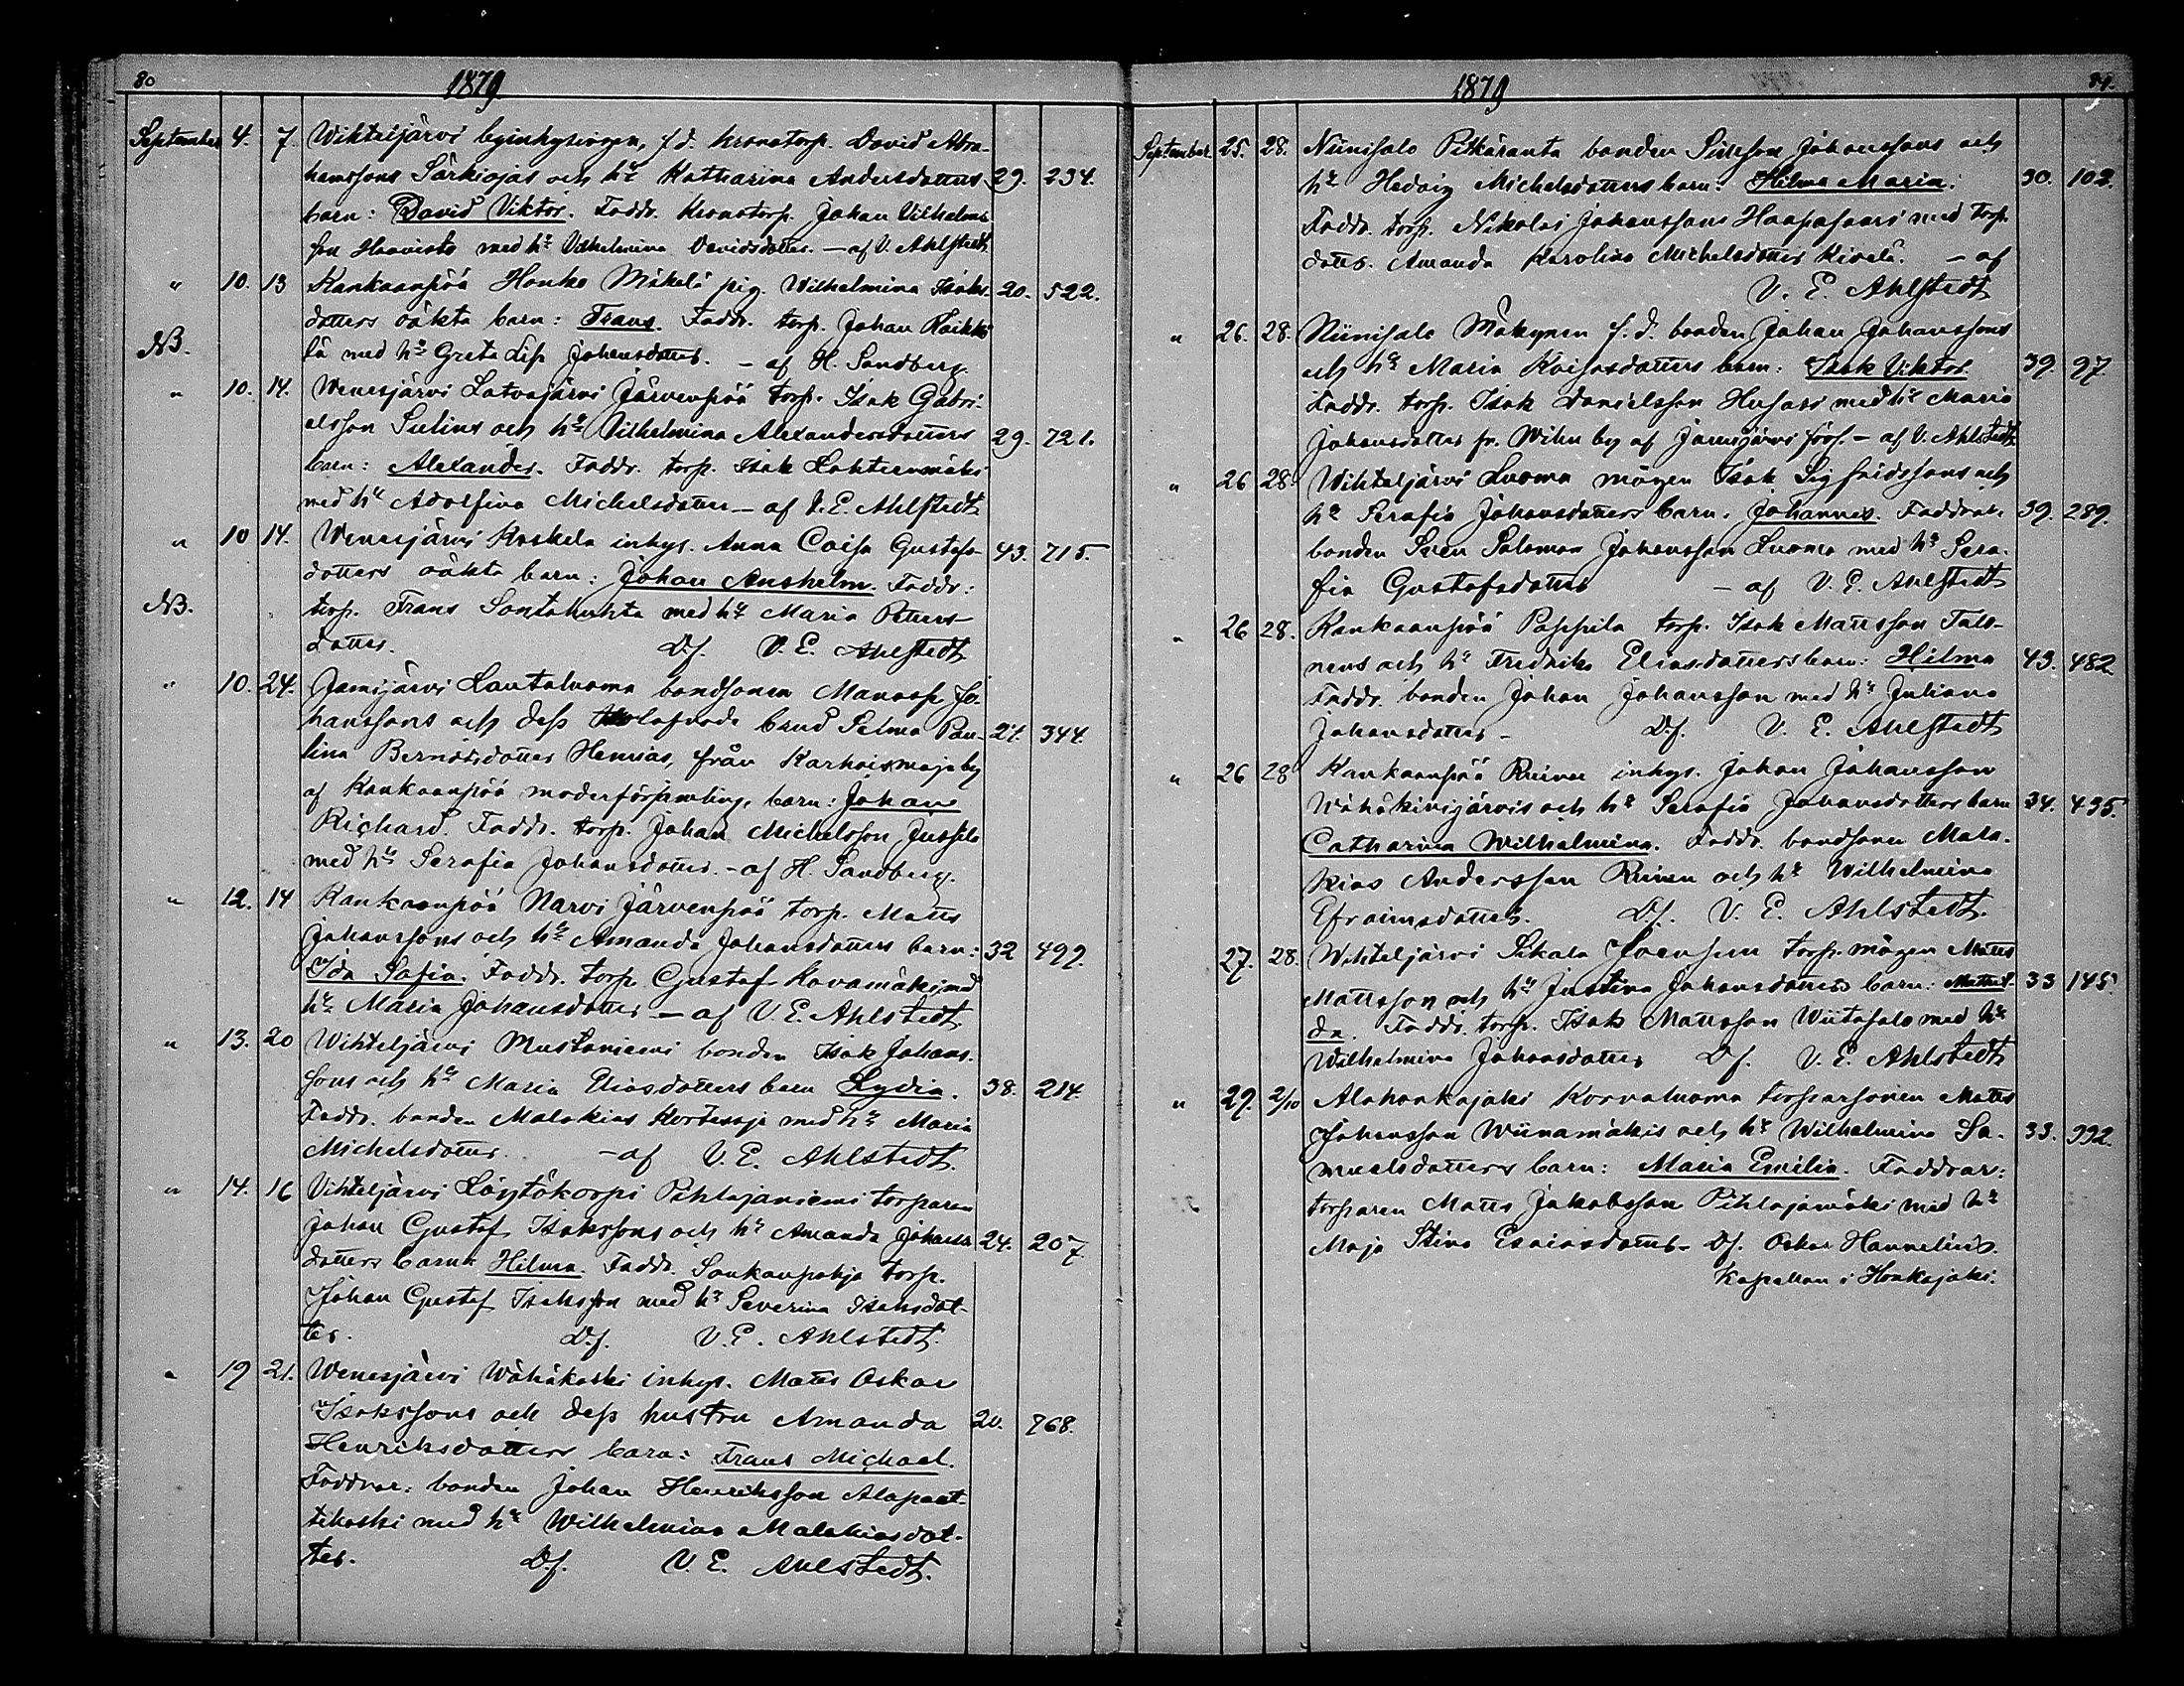 80
1879
September 4. 7. Wihteljärvi byinhysingen, f.d. kronotorp. David Abra-
hamssons Särkiojas och h:s Katharina Andersdotters 29. 234.
barn: David Viktor. Faddr. Kronotorp. Johan Vilhelms
son Haavisto med h:s Vilhelmina Davidsdotter. – af V. Ahlstedt
" 10. 13 Kankaanpää Honko Mäkelä pig. Wilhelmina Isaks- 20. 522.
dotters oäkta barn: Frans. Faddr. torp. Johan
NB. med h:s Greta Lisa Johansdotter. – af H. Sandberg.
" 10. 14. Wenesjärvi Latvajärvi Järvenpää torp. Isak Gabri-
elsson Sulins och h:s Vilhelmina Alexandersdotters 29. 721.
barn: Alexander. Faddr. torp. Isak Lähteenmäki
med h:s Adolfina Michelsdotter – af V. E. Ahlstedt
" 10 14. Wenesjärvi Koskela inhys. Anna Caisa Gustafs- 43. 715.
dotters oäkta barn: Johan Anshelm. Faddr:
NB. torp. Frans Santahuhta med h:s Maria Petters-
dotter. D.f. V. E. Ahlstedt
" 10. 24. Jamijärvi Lautaluoma bondsonen Manasse Jo-
hanssons och dess trolofvade brud Selma Pau- 21. 344.
lina Berndtsdotter Hennias, från Karhoismaja by
af Kankaanpää moderförsamling, barn: Johan
Richard. Faddr. torp. Johan Michelsson Jussila
med h:s Serafia Johansdotter. – af H. Sandberg.
" 12. 14 Kankaanpää Narvi Järvenpää torp. Matts
Johanssons och h:s Amanda Johansdotters barn: 32 499.
Ida Sofia. Faddr. torp Gustaf Kovamäki med
h:s Maria Johansdotter – af V. E. Ahlstedt
" 13. 20 Wihteljärvi Mustaniemi bonden Isak Johans-
sons och h:s Maria Eliasdotters barn Lydia. 38. 214.
Faddr. bonden Malakias Kortesoja med h:s Maria
Michelsdotter. – af V. E. Ahlstedt.
" 14. 16 Vihteljärvi Löytökorpi Pihlajaniemi torparen
Johan Gustaf Isakssons och h:s Amanda Johans- 24. 207.
dotters barn: Hilma. Faddr. Sankanpohja torp.
Johan Gustaf Isaksson med h:s Severina Isaksdot-
ter. D.f. V. E. Ahlstedt.
" 19 21. Wenesjärvi Wähäkoski inhys. Matts Oskar
Isakssons och dess hustru Amanda 20. 768.
Henriksdotters barn: Frans Michael.
Faddrar: bonden Johan Henriksson Alapaat-
tikoski med h:s Wilhelmina Malakiasdot-
ter. D.f. V. E. Ahlstedt.
1879
81.
September 25. 28. Niinisalo Pitkäranta bonden Simson Johanssons och
h:s Hedvig Michelsdotters barn: Hilma Maria. 30. 102.
Faddr. torp. Nikolai Johansson Haapasaari med torp.
dottr. Amanda Karolina Michelsdotter Kivelä. – af
V. E. Ahlstedt
" 26. 28. Niinisalo Mäkynen f.d. bonden Johan Johanssons
och h:s Maria Kaisasdotters barn: Isak Viktor 39. 97.
Faddr. torp. Isak Danielsson Husari med h:s Maria
Johansdotter fr. Wihu by af Jamijärvi förs. – af V. Ahlstedt.
" 26 28. Wihteljärvi Luoma mågen Isak Sigfridssons och
h:s Serafia Johansdotters barn. Johannes. Faddrar. 39. 289.
bonden Sven Salomon Johansson Luoma med h:s Sera-
fia Gustafsdotter – af V. E. Ahlstedt
" 26 28. Kankaanpää Pappila torp. Isak Mattsson Tuli-
nens och h:s Fredrika Eliasdotters barn: Hilma 43. 482
Faddr. bonden Johan Johansson med h:s Juliana
Johansdotter – D.f. V. E. Ahlstedt
" 26 28 Kankaanpää Ruinu inhys. Johan Johansson
Wähäkivijärvis och h:s Serafia Johansdotters barn 34. 495.
Catharina Wilhelmina. Faddr. bondsonen Mala-
kias Andersson Ruinu och h:s Wilhelmina
Efraimsdotter. D.f. V. E. Ahlstedt.
27. 28. Wihteljärvi Sikala torp. mågen Matts
Mattsson och h:s Justina Johansdotters barn: Mathil- 33 145.
da. Faddr. torp. Isak Mattsson Wiitasalo med h:s
Wilhelmina Johansdotter D.f. V. E. Ahlstedt
" 29. 2/10 Alahonkajoki Korvaluoma torparsonen Matts
Johansson Wiinamäkis och h:s Wilhelmina Sa- 33. 992.
muelsdotters barn: Maria Emilia. Faddrar:
torparen Matts Jakobsson Pihlajamäki med h:s
Maja Stina Esaiasdotter – D.f. Oskar Hannelius.
Kapellan i Honkajoki.